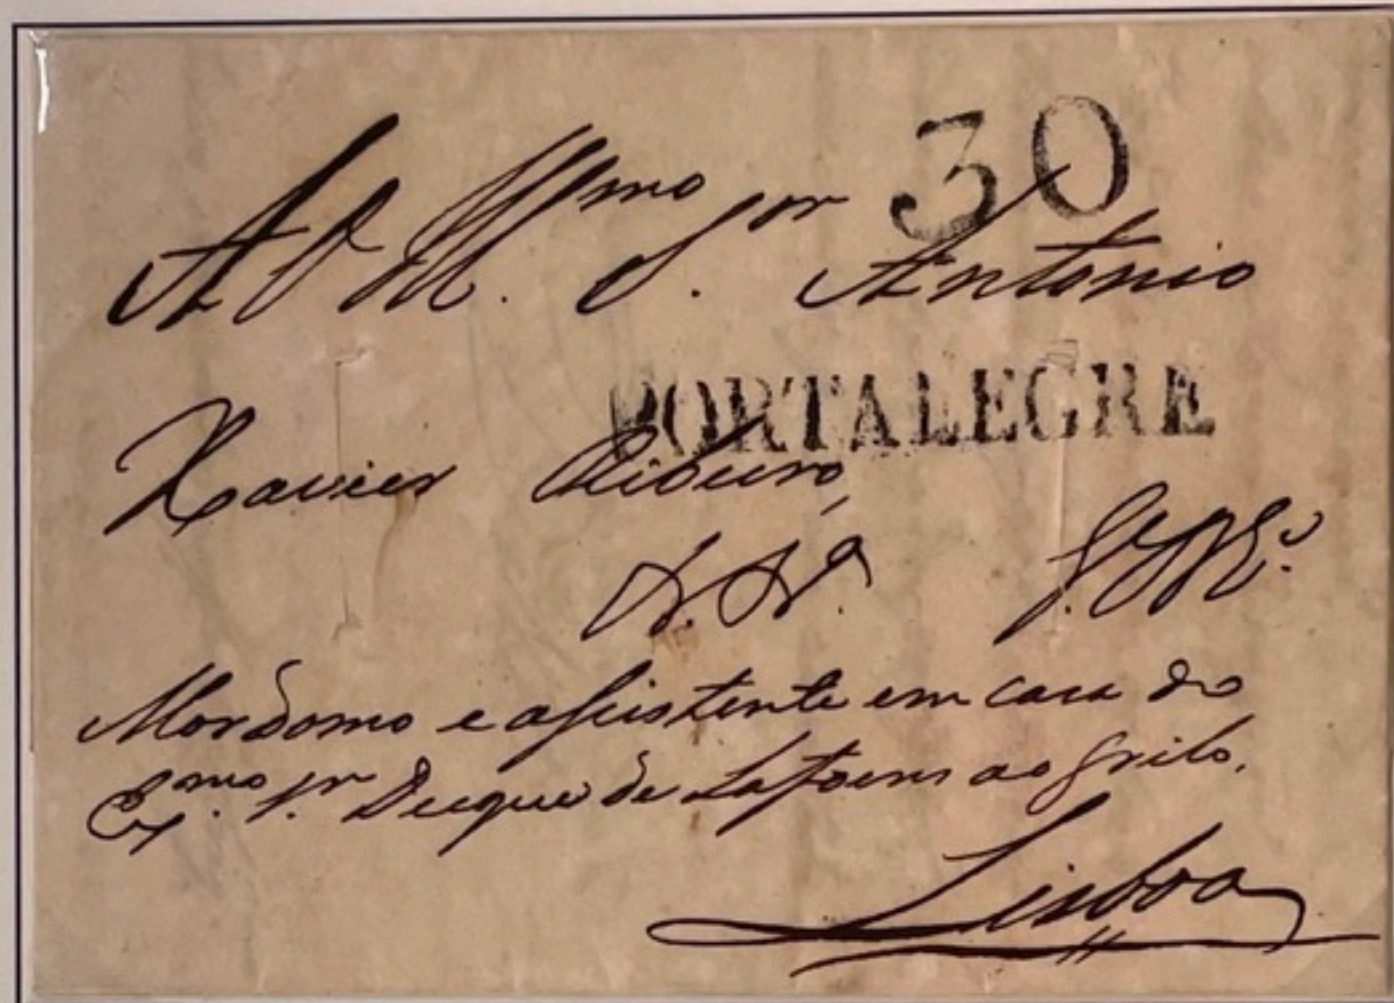 30
Ao Illmo. Snr. Antonio
PORTALEGRE
Xavier Ribeiro,
Mordomo e assistente em casa do
Exmo. Sr. Duque de Lafoens ao Grilo.
Lisboa